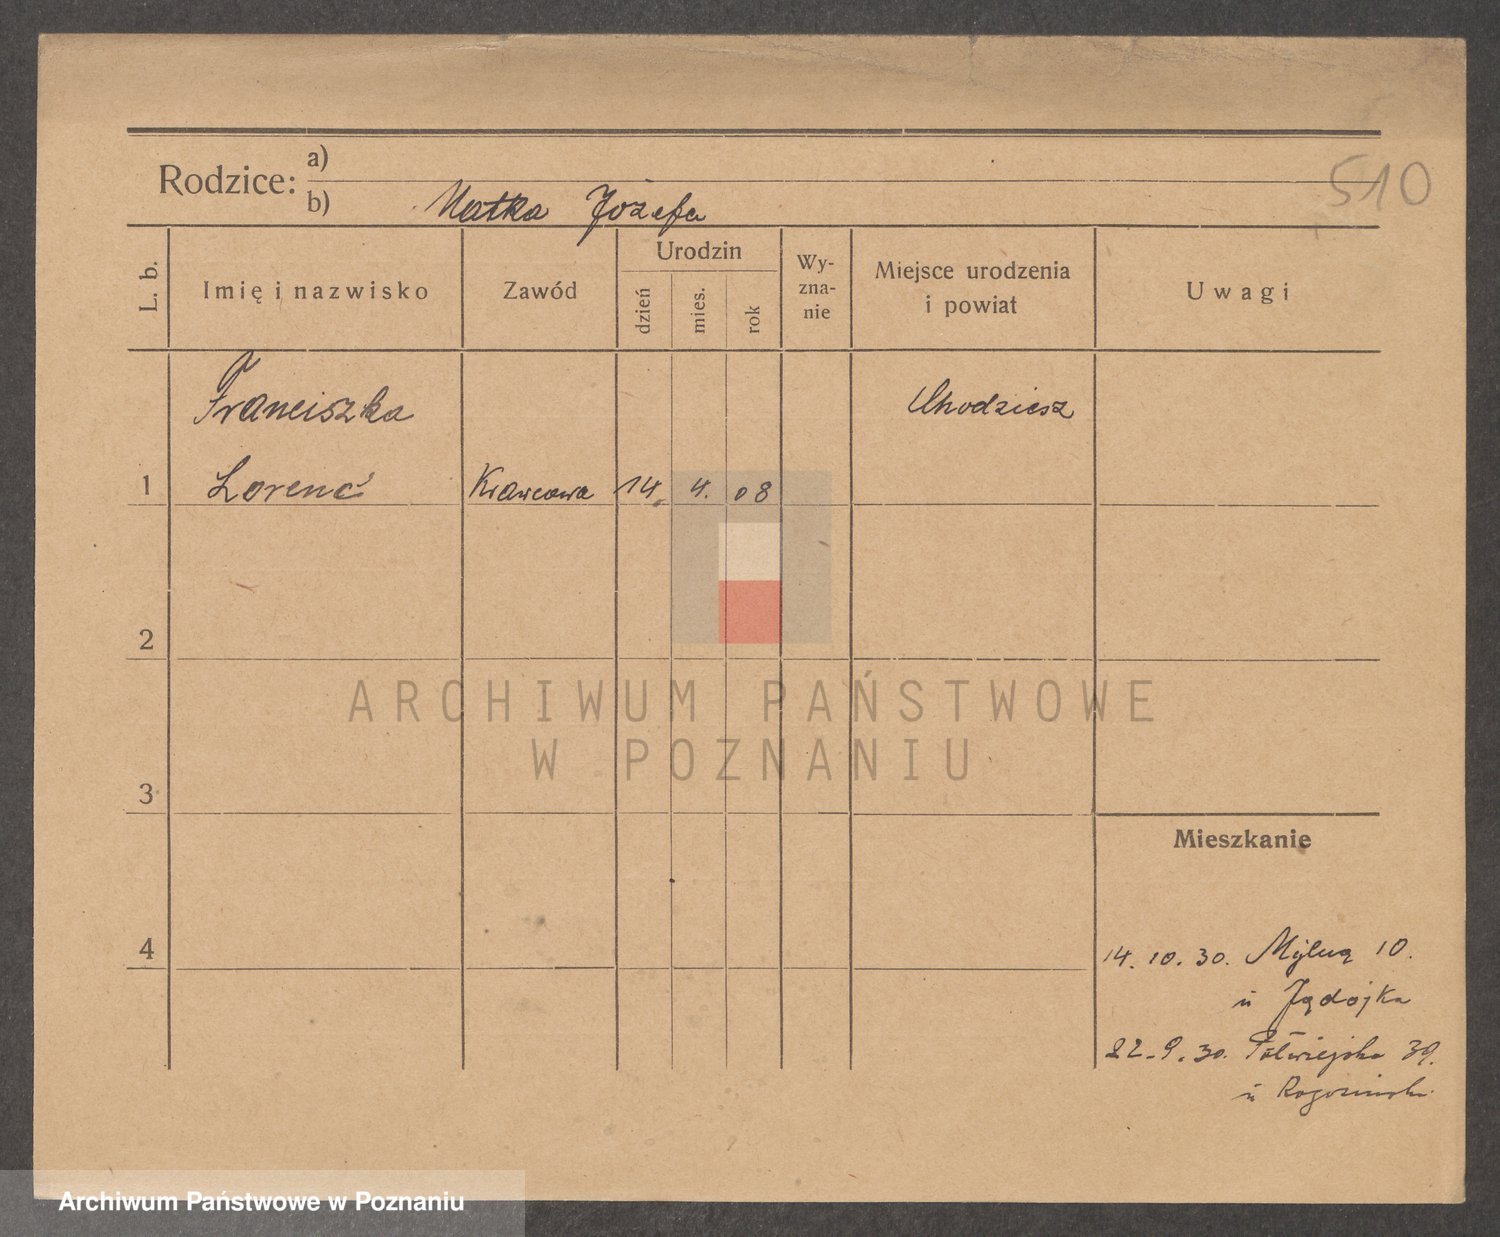 510
Rodzice:
a)
b) Matka Józefa
L. b.
Imię i nazwisko
Zawód
Urodzin
dzień
mies.
rok
Wy-
zna-
nie
Miejsce urodzenia
i powiat
Uwagi
Franciszka
Chodzież
1
Lorenc
Krawcowa
14. 4. 08
2
3
4
Mieszkanie
14. 10. 30. Mylną 10.
u
22-9.30. Półwiejska 39.
u Rogoziński
ARCHIWUM PAŃSTWOWE
W POZNANIU
Archiwum Państwowe w Poznaniu